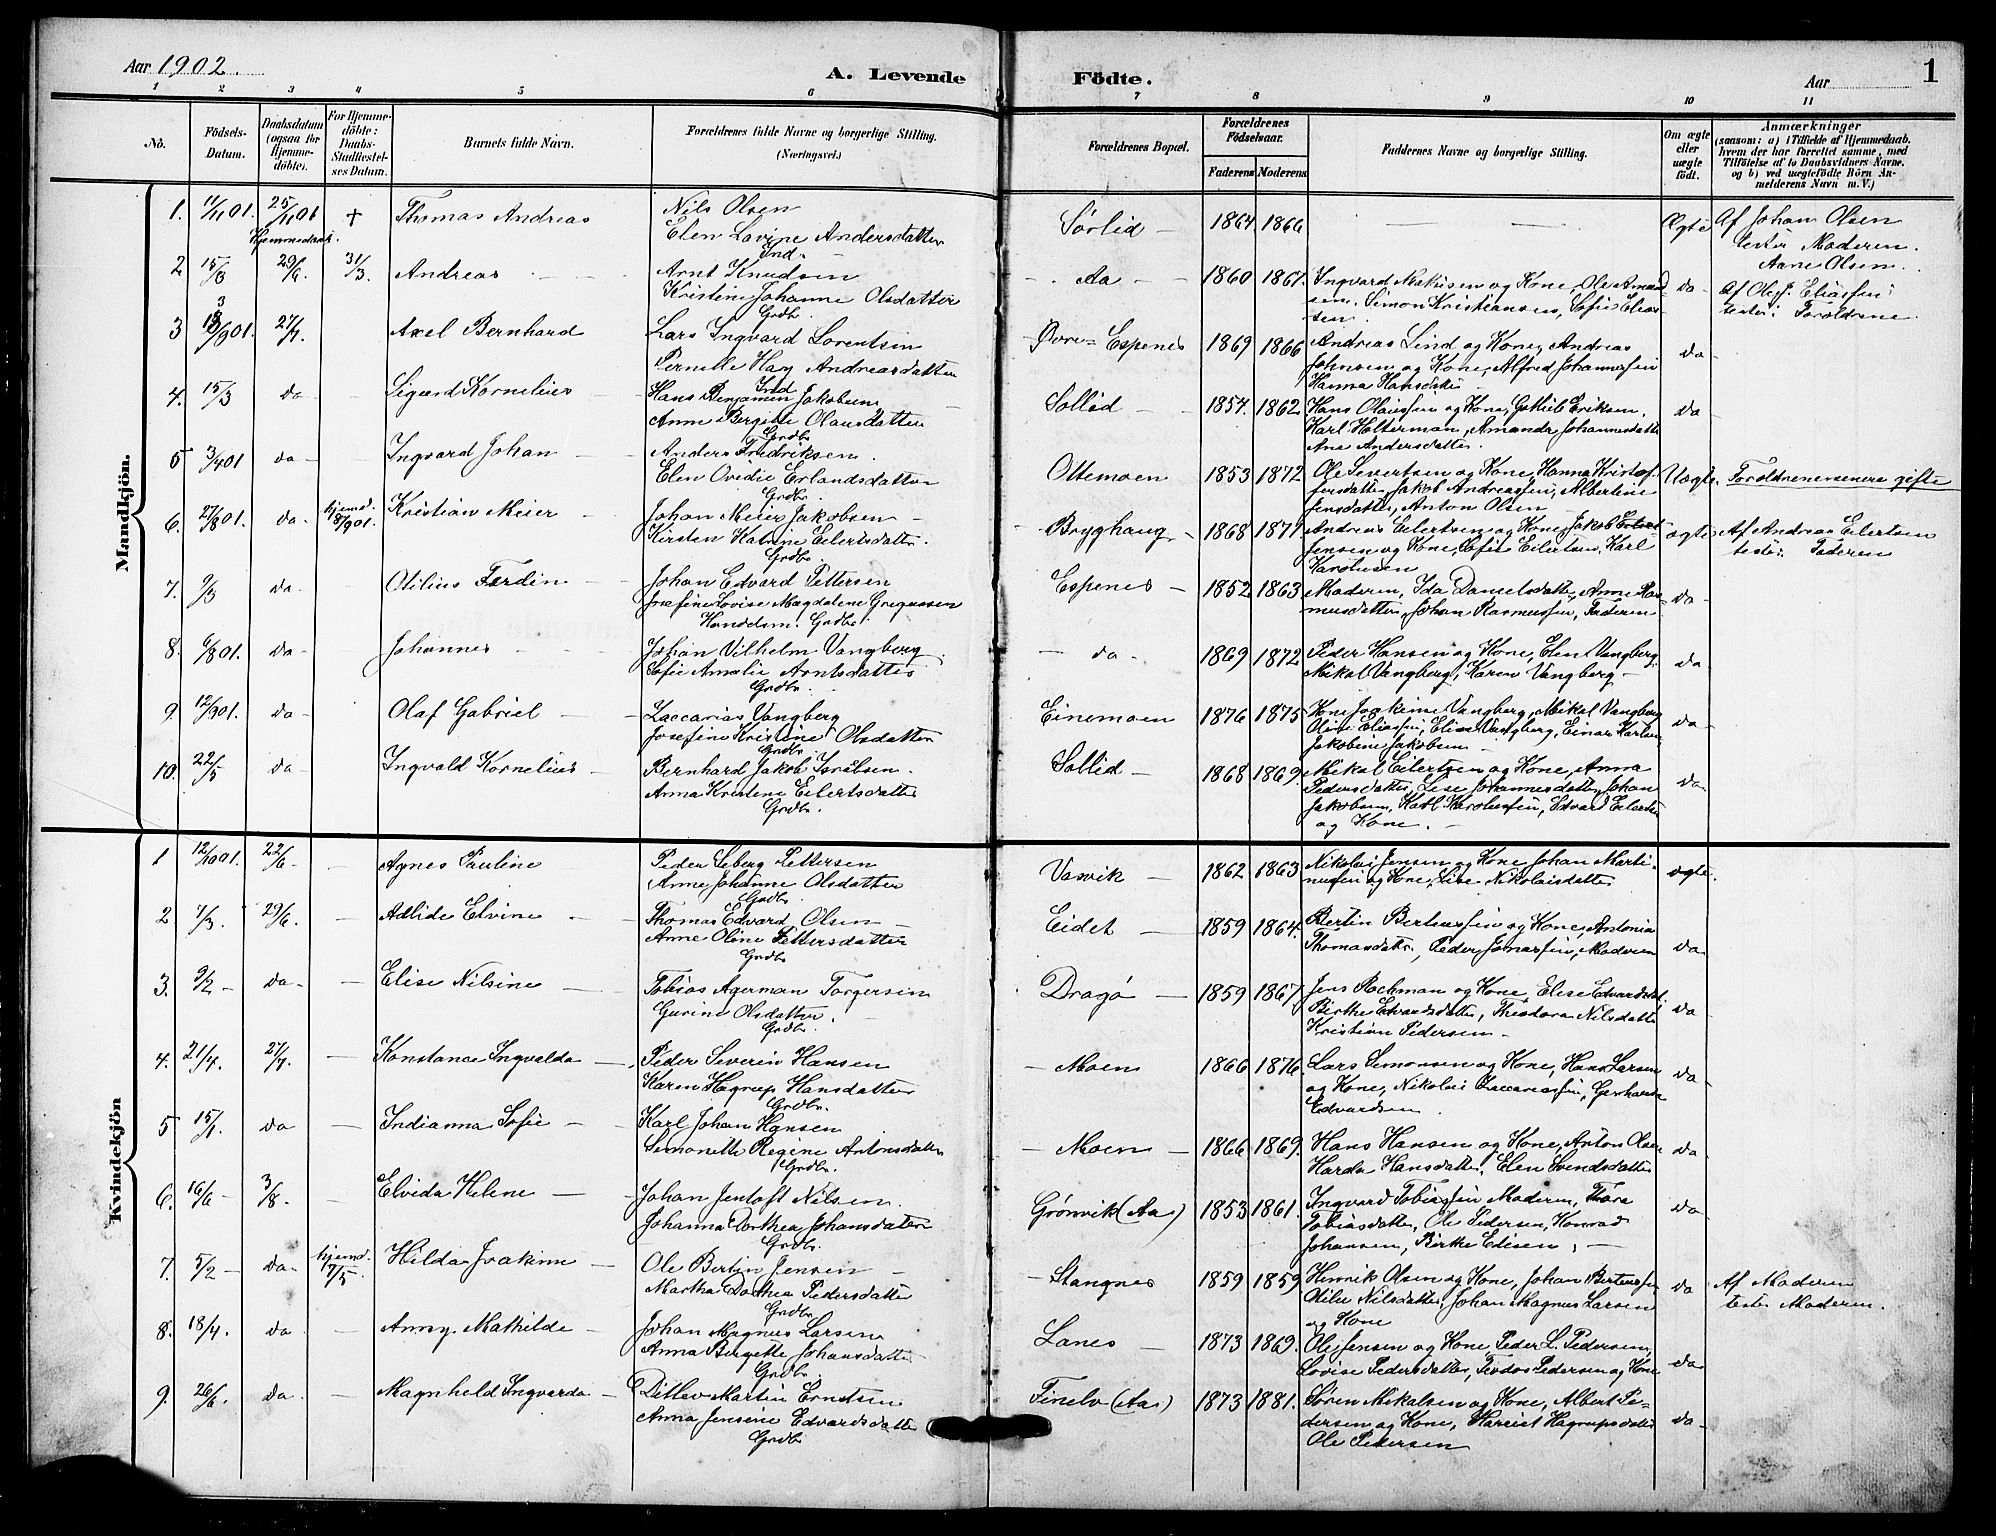 Aar 1902.
A. Levende Födte.
Aar
1
1 2 3 4 5 6 7 8 9 10 11
No.
Födsels-
Datum.
Daabsdatum
(ogsaa for
Hjemme-
döbte).
For Hjemme-
döbte:
Daabs-
Stadfæstel-
ses Datum.
Barnets fulde Navn.
Forældrenes fulde Navne og borgerlige Stilling.
(Næringsvei.)
Forældrenes Bopæl.
Forældrenes
Födselsaar.
Faderens Moderens
Faddernes Navne og borgerlige Stilling.
Om ægte
eller
uægte
født.
Anmærkninger
(saasom: a) i Tilfælde af Hjemmedaab,
hvem der har forrettet samme, med
Tilföielse af to Daabsvidners Navne,
og b) ved uægtefödte Börn An-
melderens Navn m. V.)
Mandkjön.
1. 11/11 01. 25/11 01 + Thomas Andreas
Hjemmedaab.
Nils Olsen
Elen Lovine Andersdatter
Ind.
Sørlid 1864 1866 Ægte
Af Johan Olsen
testes Moderen.
Aane Olsen.
2 15/3 29/6. 31/3. Andreas
Arnt Knudsen
Kristine Johanne Olsdatter
Grdbr.
Aa 1860 1867.
Ingvard Makusen og Kone, Ole Amund-
sen, Simon Kristiansen, Sofie Elias-
sen
da
Af Ole J. Eliassen
testes: Forældrene
3 901. 27/7. Axel Bernhard
Lars Ingvard Lorentsen
Pernelle Hag Andreasdatter
Ind
Øvre-Espenes 1869 1866
Andreas Lind og Kone, Andreas
Johnsen og Kone, Alfred Johannessen
Hanna Hansdatter
da
4. 15/3 da Sigurd Kornelius
Hans Benjamin Jakobsen
Anne Bergitte Olausdatter
Grdbr
Sollid 1854. 1862
Hans Olaussen og Kone, Gotlieb Eriksen,
Karl Holterman, Amanda Johannesdatter
Ana Andersdatter.
da
5 3/4 01 da Ingvard Johan
Anders Fredriksen
Elen Ovidie Erlandsdatter
Grdbr.
Ottemoen 1853 1872
Ole Severtsen og Kone, Hanna Kristof-
fersdatter, Jakob Andreassen, Albertine
Jensdatter, Anton Olsen
Uægte. Forældrene senere gifte
6. 27/8 01. da hjemd. 8/9 01. Kristian Meier
Johan Meier Jakobsen
Kirsten Katrine Eilertsdatter
Grdbr.
Brygghaug 1868 1871
Andreas Eilertsen og Kone, Jakob
Jensen og Kone, Sofie Eilertsen, Karl
Karolusen
ægte
Af Andreas Eilertsen
testes: Faderen
7. 9/3 da Otilius Ferdin
Johan Edvard Pettersen
Josefine Lovise Magdalene Gregussen
Handelsm. Grdbr.
Espenes 1852 1863
Moderen, Ida Danielsdatter, Anne Ras-
musdatter, Johan Rasmussen, Faderen
da
8. 6/8 01. da Johannes
Johan Vilhelm Vangberg
Sofie Amalie Arntsdatter
Grdbr
da 1869 1872
Peder Hansen og Kone, Elen Vangberg,
Mikal Vangberg, Karen Vangberg
da
9 12/9 01. da Olaf Gabriel
Zaccarias Vangberg
Josefine Kristine Olsdatter
Grdbr.
Einemoen 1876 1875
Kone Joakime Vangberg, Mikal Vangberg
Oline Eliassen, Elise Vangberg, Einar Karlsen,
Jakobine Jakobsen
da
10. 22/5 da Ingvald Kornelius
Bernhard Jakob Israelsen.
Anna Kristine Eilertsdatter
Grdbr.
Sollid 1868 1869.
Mikal Eilertsen og Kone, Anna
Pedersdatter, Lise Johannesdatter, Johan
Jakobsen, Karl Karolussen, Edvard Eilertsen
og Kone.
da
Kvindekjön
1 12/10 01. 22/6 Agnes Pauline
Peder Seberg Pettersen
Anne Johanne Olsdatter
Grdbr.
Vasvik 1862 1863
Nikolai Jensen og Kone Johan Marti-
nussen og Kone, Lise Nikolaisdatter
ægte.
2 7/3. 29/6. Adlide Elvine
Thomas Edvard Olsen
Anne Oline Pettersdatter
Grdbr
Eidet 1859 1864.
Bertin Bertinussen og Kone, Antonia
Thomasdatter, Peder Jonassen, Moderen
da
3. 9/2 da Elise Nilsine
Tobias Agerman Torgersen
Gurine Olsdatter.
Grdbr.
Dragø 1859 1867
Jens Rochman og Kone, Elise Edvardsdat.
Birthe Edvardsdatter, Theodora Nilsdatter
Kristian Pedersen
da
4. 21/4. 27/7. Konstance Ingvalda
Peder Severin Hansen
Karen Hagrup Hansdatter
Grdbr.
Moen 1866 1876
Lars Simonsen og Kone, Hans Larsen
og Kone, Nikolai Zaccariassen, Gerhard
Edvardsen
da
5 15/1. da Indianna Sofie
Karl Johan Hansen
Simonette Regine Antonsdatter
Grdbr.
Moen 1866 1869.
Hans Hansen og Kone, Anton Olsen
Harda Hansdatter, Elen Svendsdatter
da
6. 16/6 3/8. Elvida Helene
Johan Jentoft Nilsen.
Johanna Dorthea Johansdatter
Grdbr.
Grønvik (Aa) 1853 1861.
Ingvard Tobiassen Moderen, Thora
Tobiasdatter, Ole Pedersen, Konrad
Johansen, Birthe Edisen,
da
7. 5/2 da hjemd. 7/5. Hilda Joakime
Ole Bertin Jensen
Martha Dorthea Pedersdatter
Grdbr
Stangnes 1859 1859
Henrik Olsen og Kone, Johan Bertinussen
Otilie Nilsdatter, Johan Magnus Larsen
og Kone
da
Af Moderen
testes Moderen.
8. 18/4. da Anny Mathilde
Johan Magnus Larsen
Anna Bergette Johansdatter
Grdbr.
Lanes 1873 1869.
Ole Jensen og Kone Peder L. Pedersen,
Lovise Pedersdatter, Teodor Pedersen og Kone
da
9. 26/6. da Magnhild Ingvarda
Ditlev Martin Erntsen
Anna Jensine Edvardsdatter
Grdbr
Finelv (Aa) 1873 1881.
Søren Mikalsen og Kone, Albert Pe-
dersen og Kone, Harriet Hagrupsdatter
Ole Pedersen
da